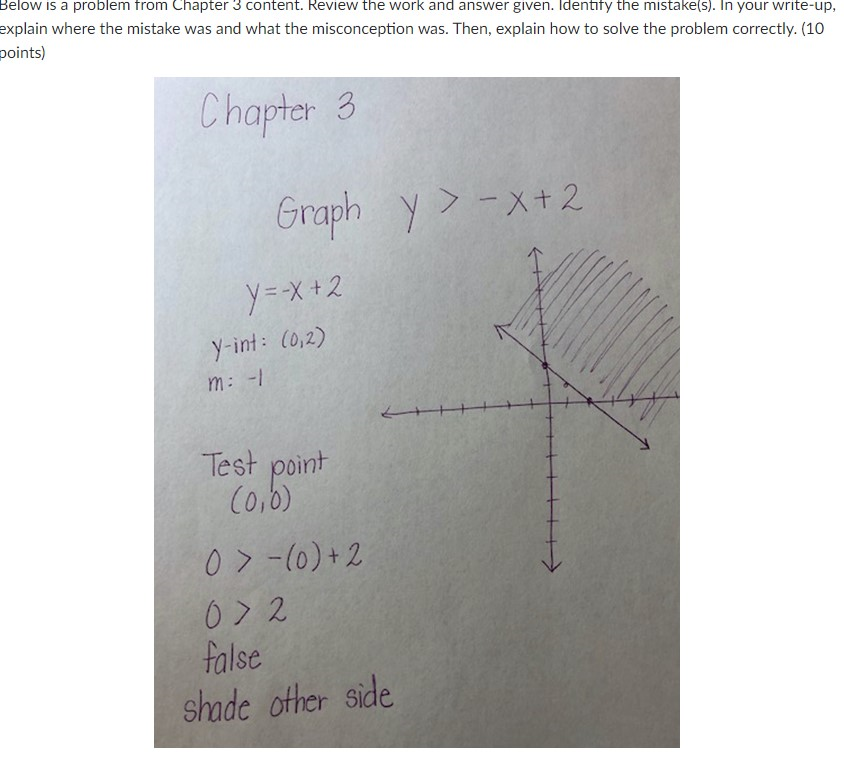 Below is a problem from Chapter 3 content. Review the work and answer given. Identify the mistake(s). In your write-up,
explain where the mistake was and what the misconception was. Then, explain how to solve the problem correctly. (10
points)
Chapter 3
Graph y > -x+2
y=-x+2
y-int: (0,2)
m: -1
Test point
(0,0)
0 > -(0)+2
0 > 2
false
shade other side